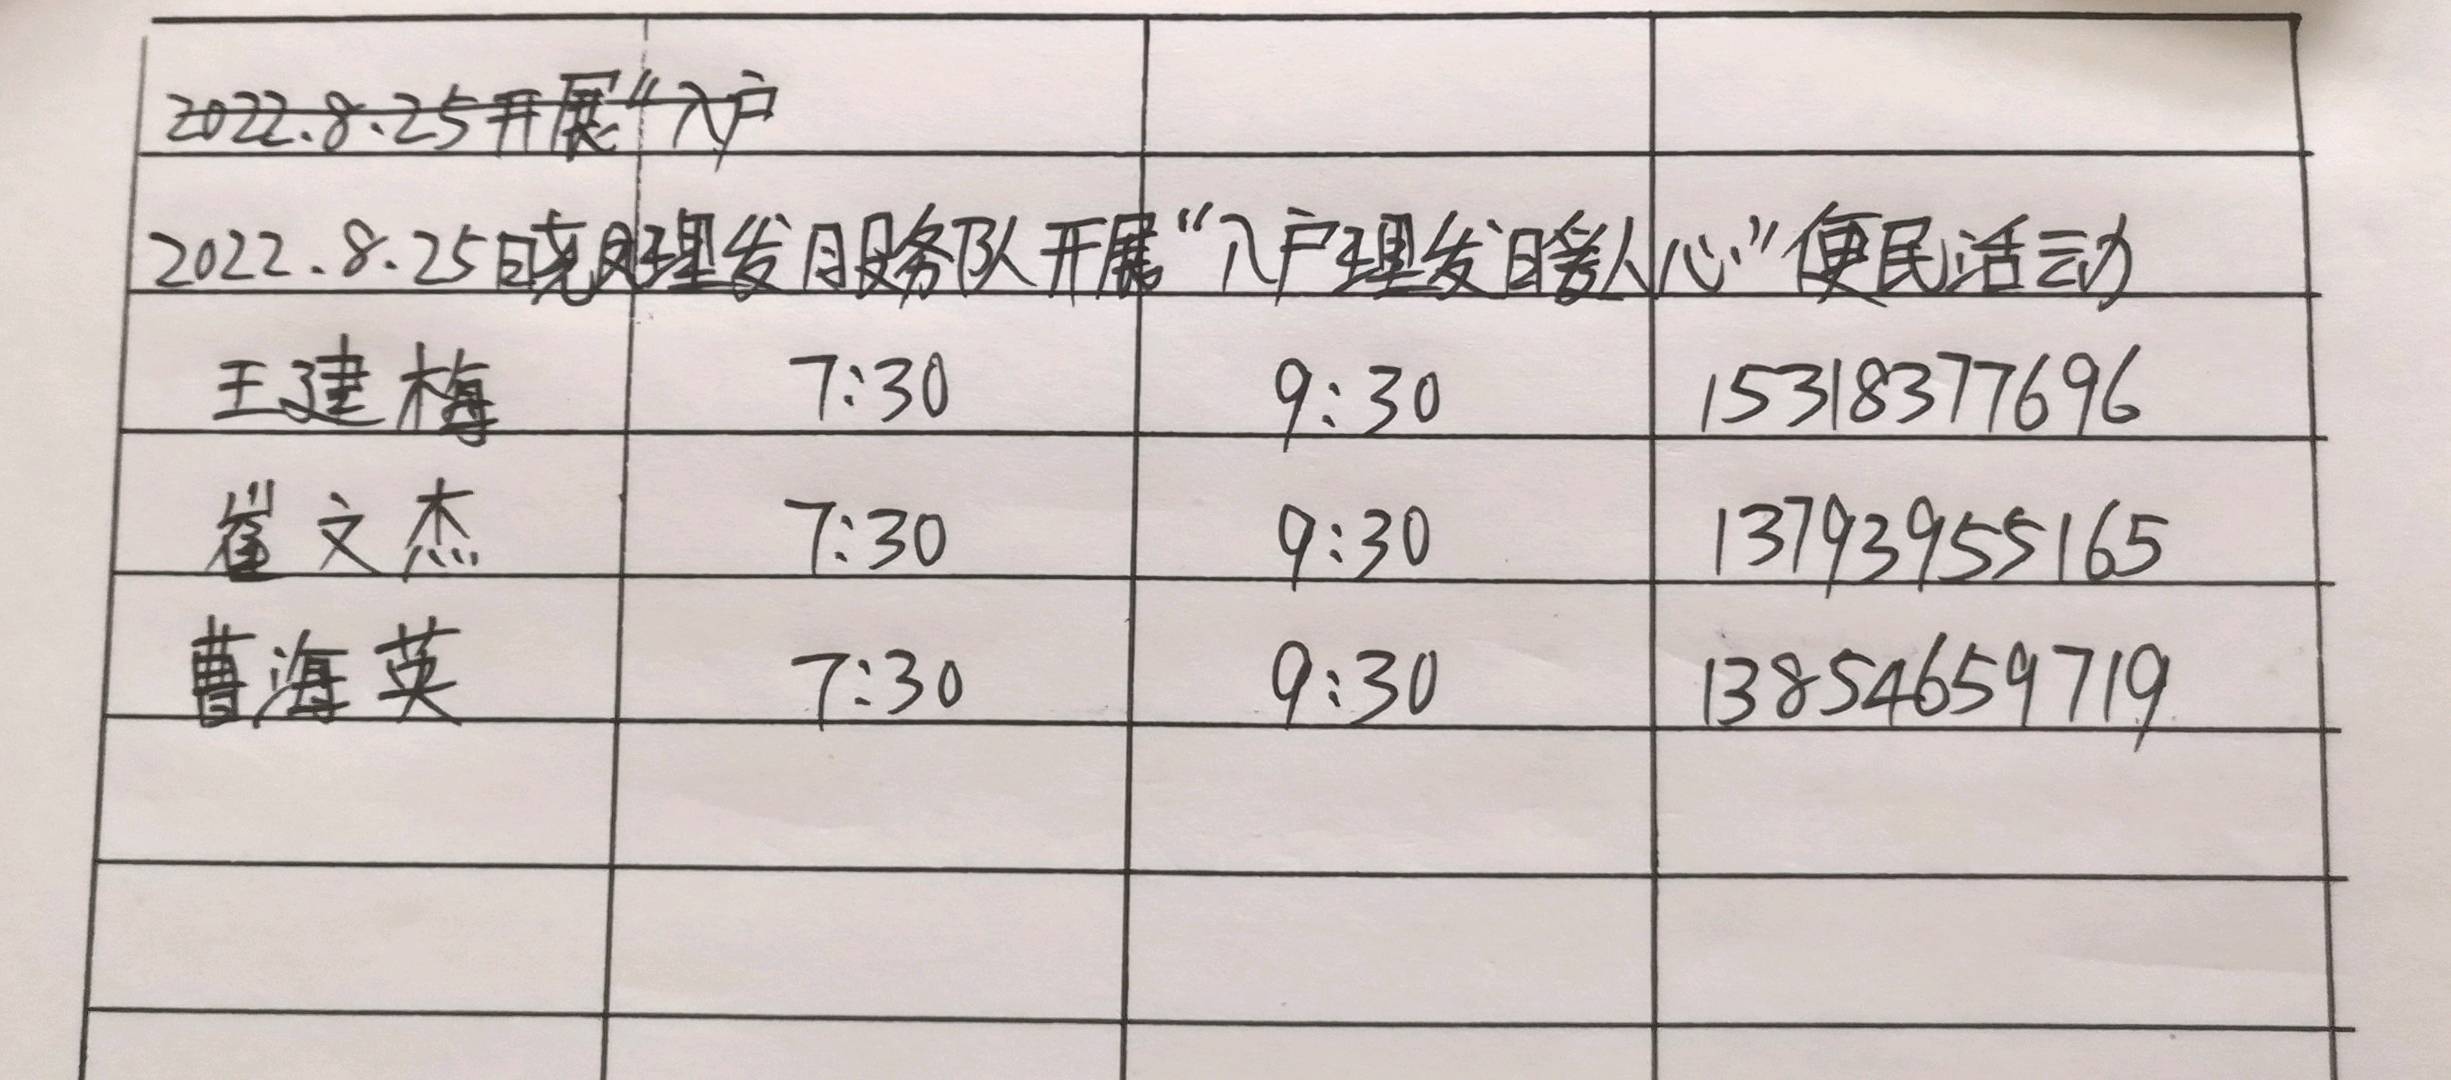 2022.8.25开展“入户
2022.8.25晓风理发服务队开展“入户理发暖人心”便民活动
王建梅 7:30 9:30 15318377696
崔文杰 7:30 9:30 13793955165
曹海英 7:30 9:30 13854659719